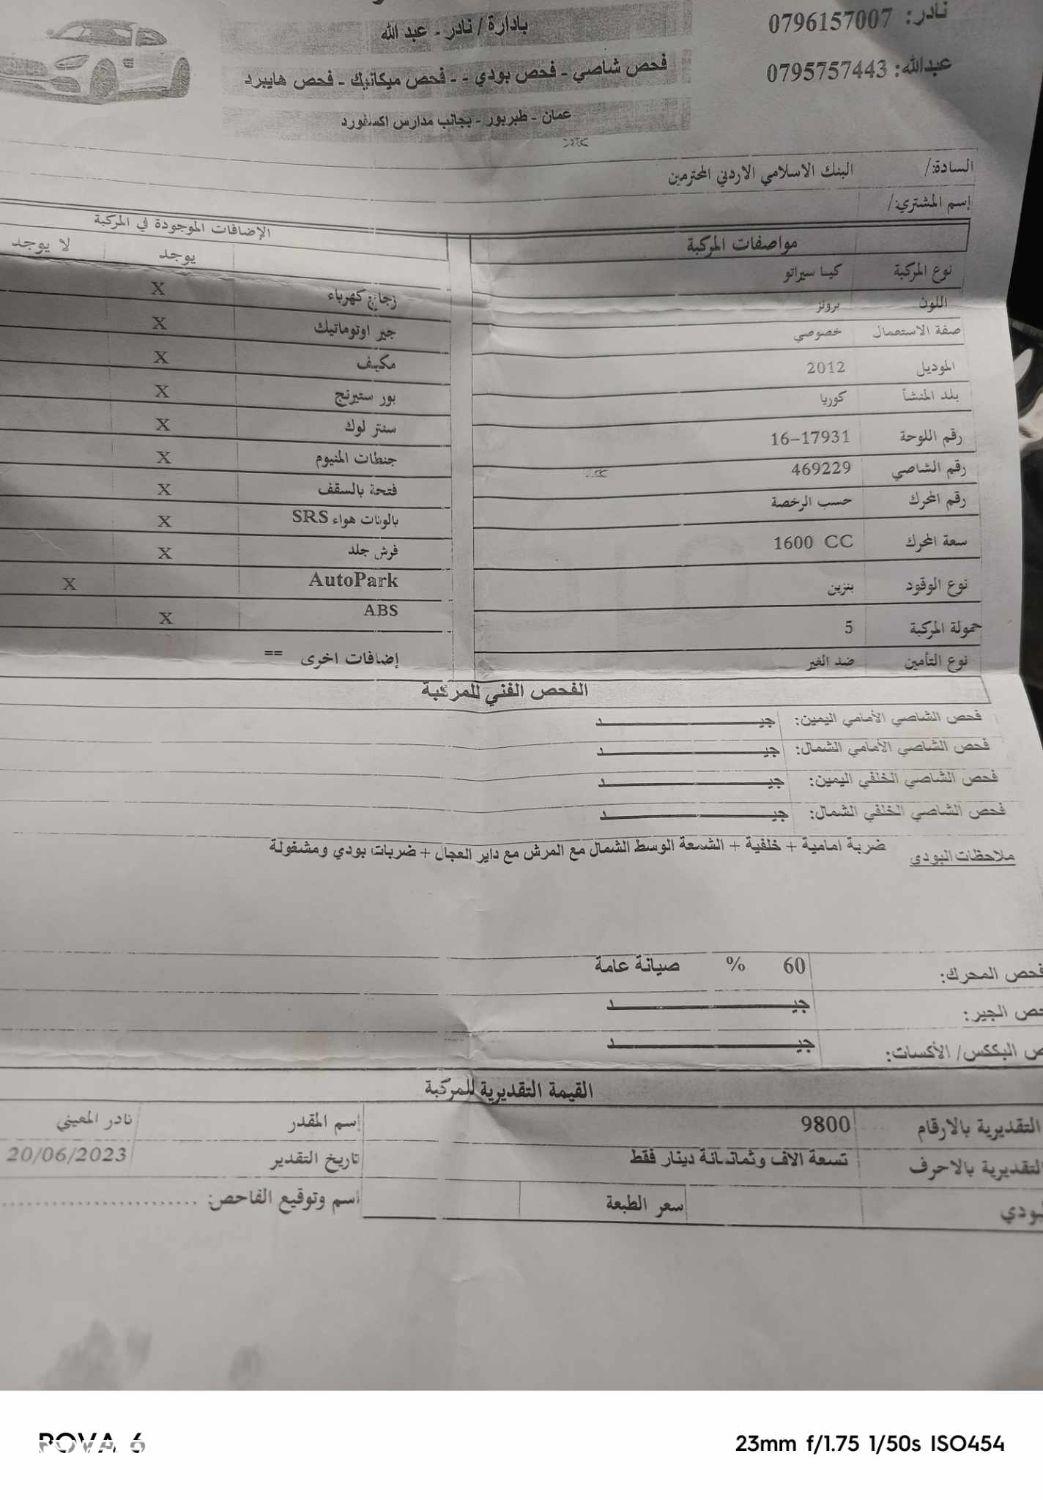 بادارة / نادر - عبد الله
نادر: 0796157007
فحص شاصي - فحص بودي - - فحص ميكانيك - فحص هايبرد
عبدالله: 0795757443
عمان - طبربور - بجانب مدارس اكسفورد
السادة/ البنك الاسلامي الاردني المحترمين
إسم المشتري/
مواصفات المركبة
نوع المركبة كيا سيراتو
اللون برونز
صفة الاستعمال خصوصي
الموديل 2012
بلد المنشأ كوريا
رقم اللوحة 16-17931
رقم الشاصي 469229
رقم المحرك حسب الرخصة
سعة المحرك 1600 CC
نوع الوقود بنزين
حمولة المركبة 5
نوع التأمين ضد الغير
الإضافات الموجودة في المركبة
يوجد لا يوجد
زجاج كهرباء X
جير اوتوماتيك X
مكيف X
بور ستيرنج X
سنتر لوك X
جنطات المنيوم X
فتحة بالسقف X
بالونات هواء SRS X
فرش جلد X
AutoPark X
ABS X
إضافات اخرى ==
الفحص الفني للمركبة
فحص الشاصي الأمامي اليمين: جيــــــد
فحص الشاصي الأمامي الشمال: جيــــــد
فحص الشاصي الخلفي اليمين: جيــــــد
فحص الشاصي الخلفي الشمال: جيــــــد
ملاحظات البودي ضربة امامية + خلفية + الشمعة الوسط الشمال مع المرش مع داير العجال + ضربات بودي ومشغولة
فحص المحرك: 60 % صيانة عامة
حص الجير: جيــــــد
ص البكس/ الأكسات: جيــــــد
القيمة التقديرية للمركبة
التقديرية بالارقام 9800
التقديرية بالاحرف تسعة الاف وثمانمانة دينار فقط
بودي سعر الطبعة
إسم المقدر نادر المعيني
تاريخ التقدير 20/06/2023
اسم وتوقيع الفاحص: ........................
POVA 6
23mm f/1.75 1/50s ISO454